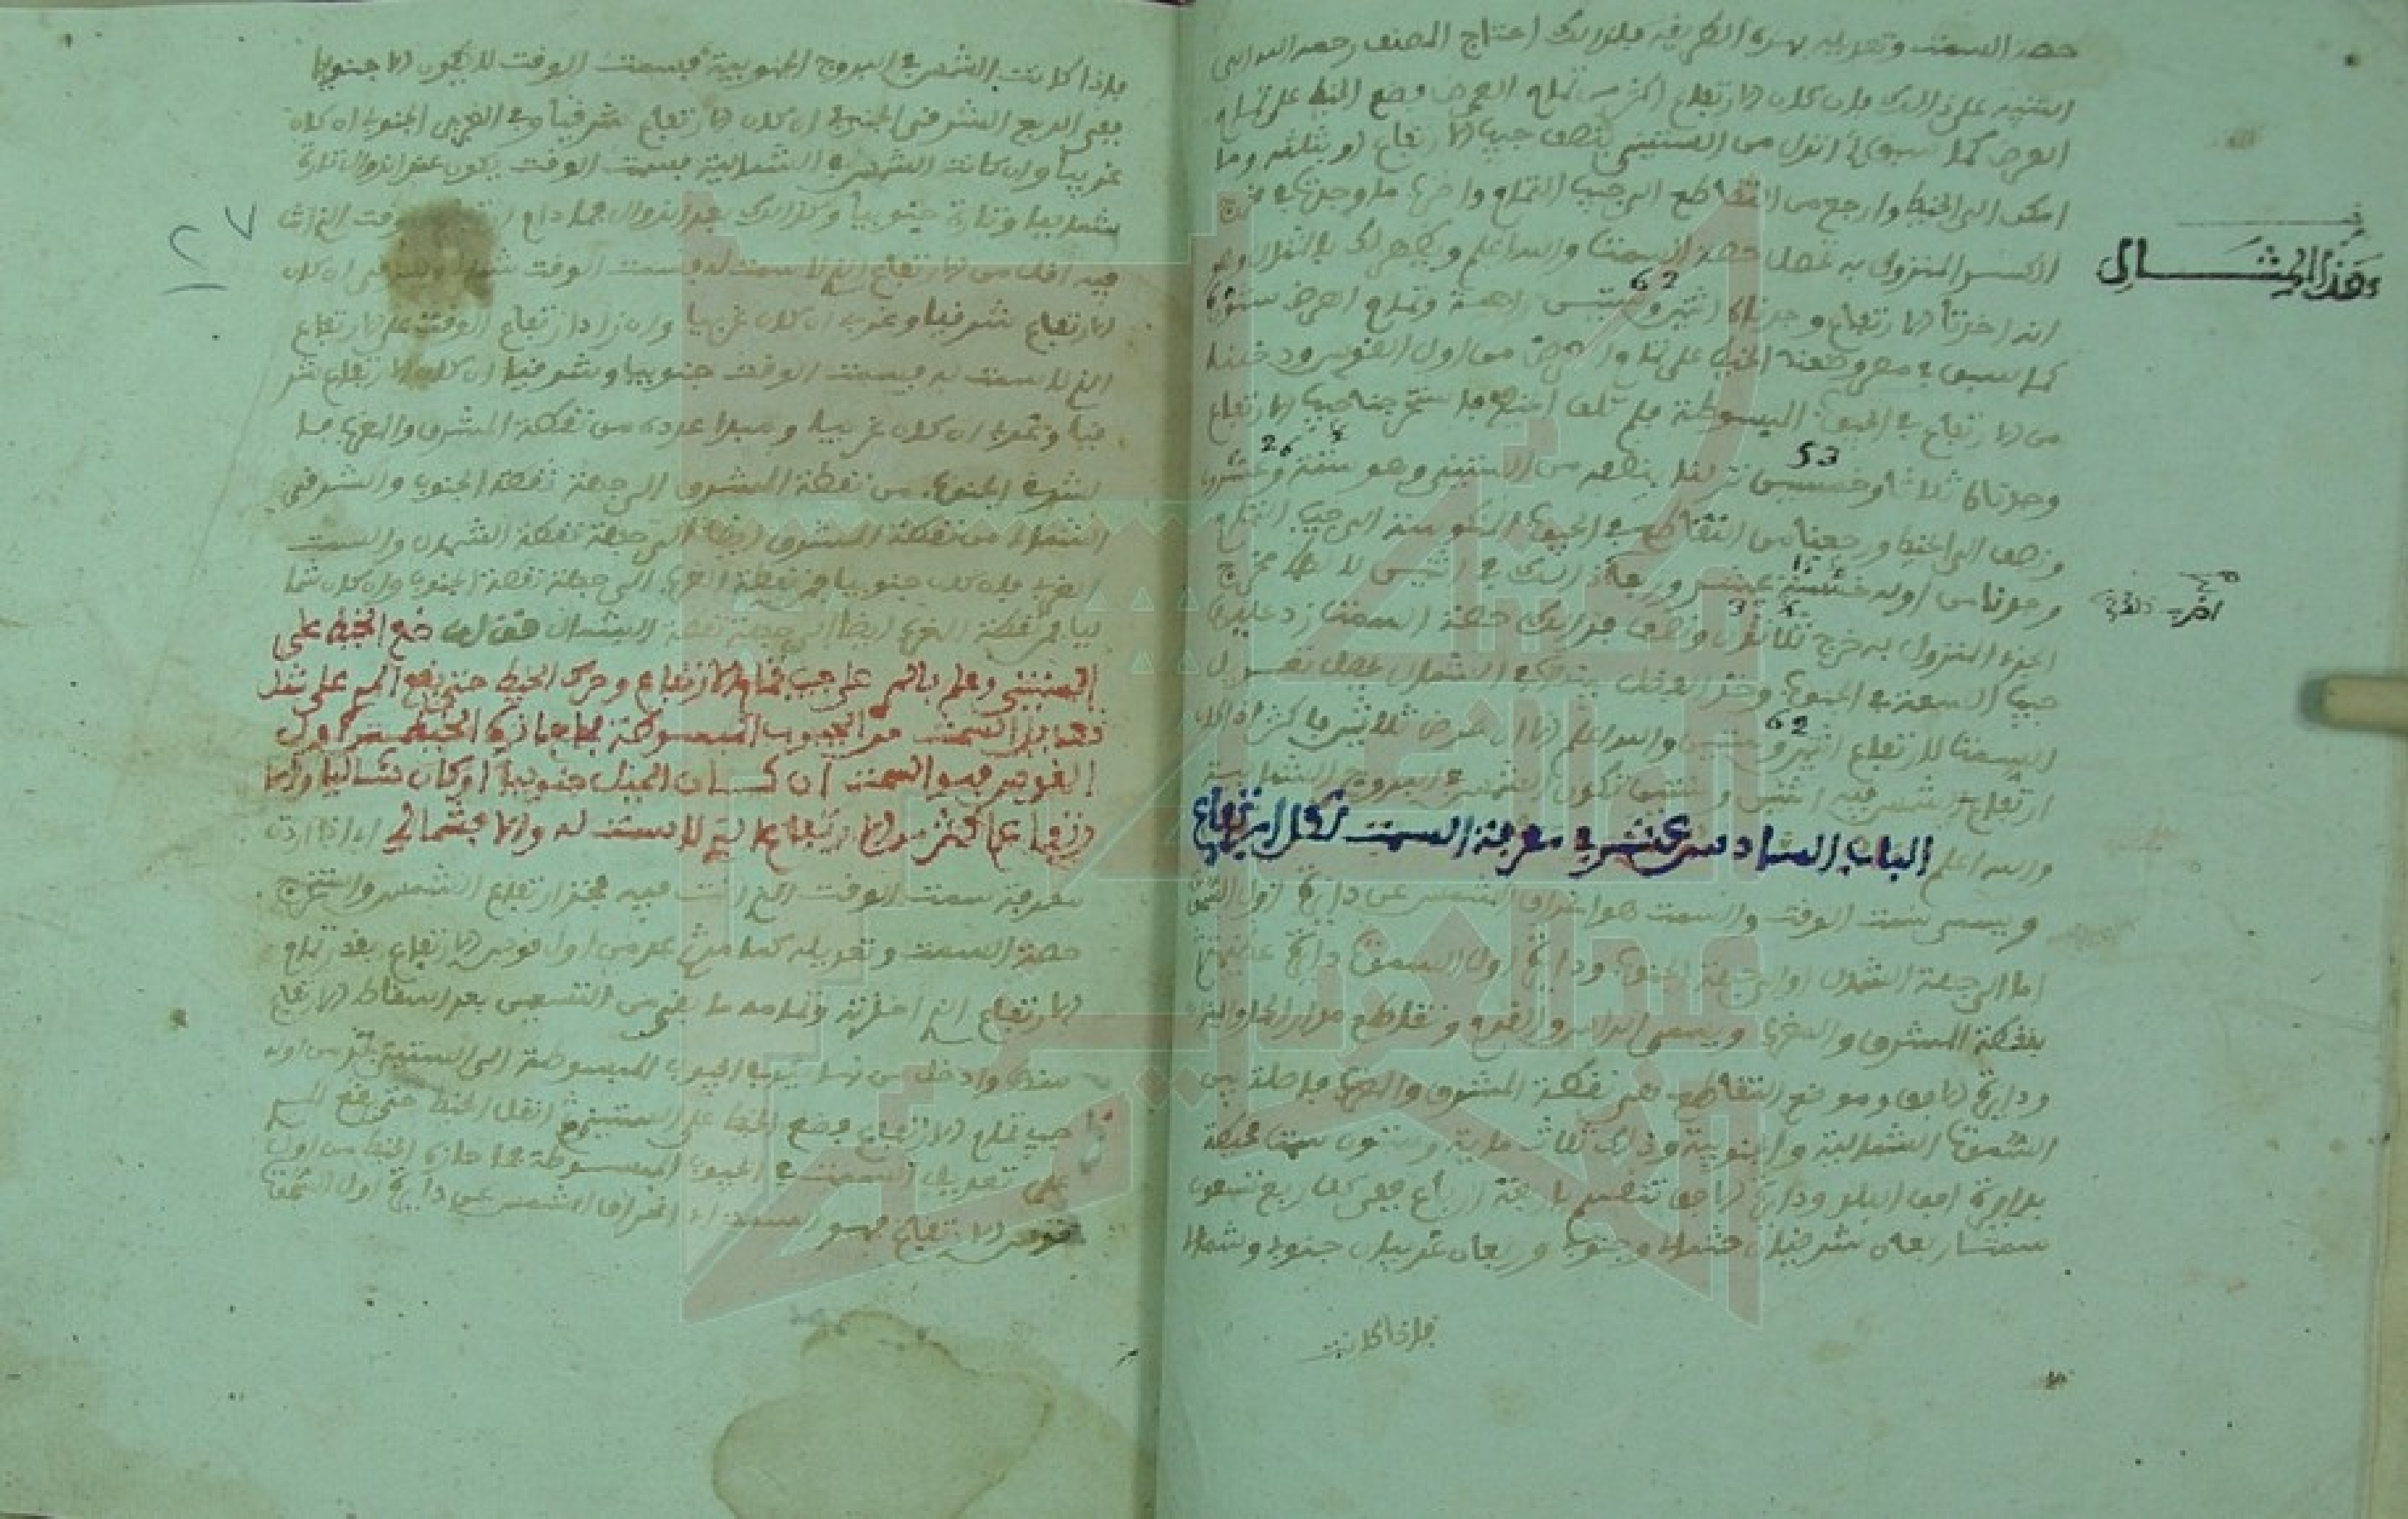 حصة السمت وتعديله بهذه الطريقة فلذلك احتاج المصنف رحمه الله الى
التنبيه على ذلك فان كان الارتفاع اكثر من تمام العرض فضع الخيط على تمام
العرض كما سبق انزل من الستيني بنصف جيب الارتفاع او بثلثه وما
امكن الى الخيط وارجع من التقاطع الى جيب التمام واضرب ما وجدته في مخرج
الكسر المنزول به تحصل حصة السمت والله اعلم ويظهر لك بالمثال وهو
وهذا المثال
انه اخذنا الارتفاع وجدناه اثنين وستين 62 وتمام العرض ستون
كما سبق في مصر وضعنا الخيط على تمام العرض من اول القوس ودخلنا
من الارتفاع في الجيوب المبسوطة فلم تلق الخيط فاستخرجنا جيب الارتفاع
وجدناه ثلاثا وخمسين 53 نزلنا بنصفه من الستيني وهو ستة وعشرون 26
ونصف الى الخيط ورجعنا من التقاطع في الجيوب المنكوسة الى جيب التمام
وجدنا من اوله خمسة عشر 15 وربعا ضربنا ذلك في اثنين لانها مخرج
الجزء المنزول به خرج ثلاثون ونصف فذلك حصة السمت زد عليها
جيب السعة في الجنوب وخذ الفضل بينهما في الشمال يحصل تعديل
السمت للارتفاع اثنين وستين 62 والله اعلم
ارتفاع الشمس فيه اثنين وستين تكون الشمس في البروج الشمالية
والله اعلم الباب السادس عشر في معرفة السمت لكل ارتفاع
ويسمى سمت الوقت والسمت هو انحراف الشمس عن دائرة اول السموت
اما الى جهة الشمال او الى جهة الجنوب ودائرة اول السموت دائرة عظيمة
بنقطة المشرق والمغرب وبسمتي الراس والقدم وتقاطع مدار الحمل والميزان
ودائرة الافق وموضع التقاطع هي نقطة المشرق والمغرب فاصلة بين
السموت الشمالية والجنوبية وذلك ثلاث مائة وستون سمتا محيطة
بدائرة افق البلد ودائرة الافق تنقسم باربعة ارباع ففي كل ربع تسعون
سمتا ربعان شرقيان شمالا وجنوبا وربعان غربيان جنوبا وشمالا
فاذا كانت
١٢٧
فاذا كانت الشمس في البروج الجنوبية فسمت الوقت لا يكون الا جنوبيا
ففي الربع الشرقي الجنوبي ان كان الارتفاع شرقيا وفي الغربي الجنوبي ان كان
غربيا وان كانت الشمس في الشمالية فسمت الوقت يكون عند الزوال تارة
شماليا وتارة جنوبيا وكذلك بعد الزوال فما دام ارتفاع الوقت الذي انت
فيه اقل من الارتفاع الذي لا سمت له فسمت الوقت شمالي وشرقي ان كان
الارتفاع شرقيا وغربي ان كان غربيا وان زاد ارتفاع الوقت على الارتفاع
الذي لا سمت له فسمت الوقت جنوبيا وشرقيا ان كان الارتفاع شر
قيا وغربيا ان كان غربيا ومبدا عدده من نقطة المشرق والمغرب فا
لشرقي الجنوبي من نقطة المشرق الى جهة نقطة الجنوب والشرقي
الشمالي من نقطة المشرق ايضا الى جهة نقطة الشمال والسمت
الغربي فان كان جنوبيا فمن نقطة المغرب الى جهة نقطة الجنوب وان كان شما
ليا فمن نقطة المغرب ايضا الى جهة نقطة الشمال فقال ضع الخيط على
الستيني وعلم بالمري على جيب تمام الارتفاع وحرك الخيط حتى يقع المري على مثل
تعديل السمت من الجيوب المبسوطة فما حازه الخيط من اول
القوس فهو السمت ان كان الميل جنوبيا او كان شماليا والا
رتفاع اكثر من الارتفاع الذي لا سمت له والا فشمالي اي اذا اردت
معرفة سمت الوقت الذي انت فيه فخذ ارتفاع الشمس واستخرج
حصة السمت وتعديله كما مر ثم عد من اول قوس الارتفاع بقدر تمام
الارتفاع الذي اخذته وتمامه ما بقي من التسعين بعد اسقاط الارتفاع
منها وادخل من نهايته في الجيوب المبسوطة الى الستيني تجد من اوله
جيب تمام الارتفاع فضع الخيط على الستيني ثم انقل الخيط حتى يقع المري
على تعديل السمت في الجيوب المبسوطة فما حازه الخيط من اول
قوس الارتفاع فهو السمت اي انحراف الشمس عن دائرة اول السموت